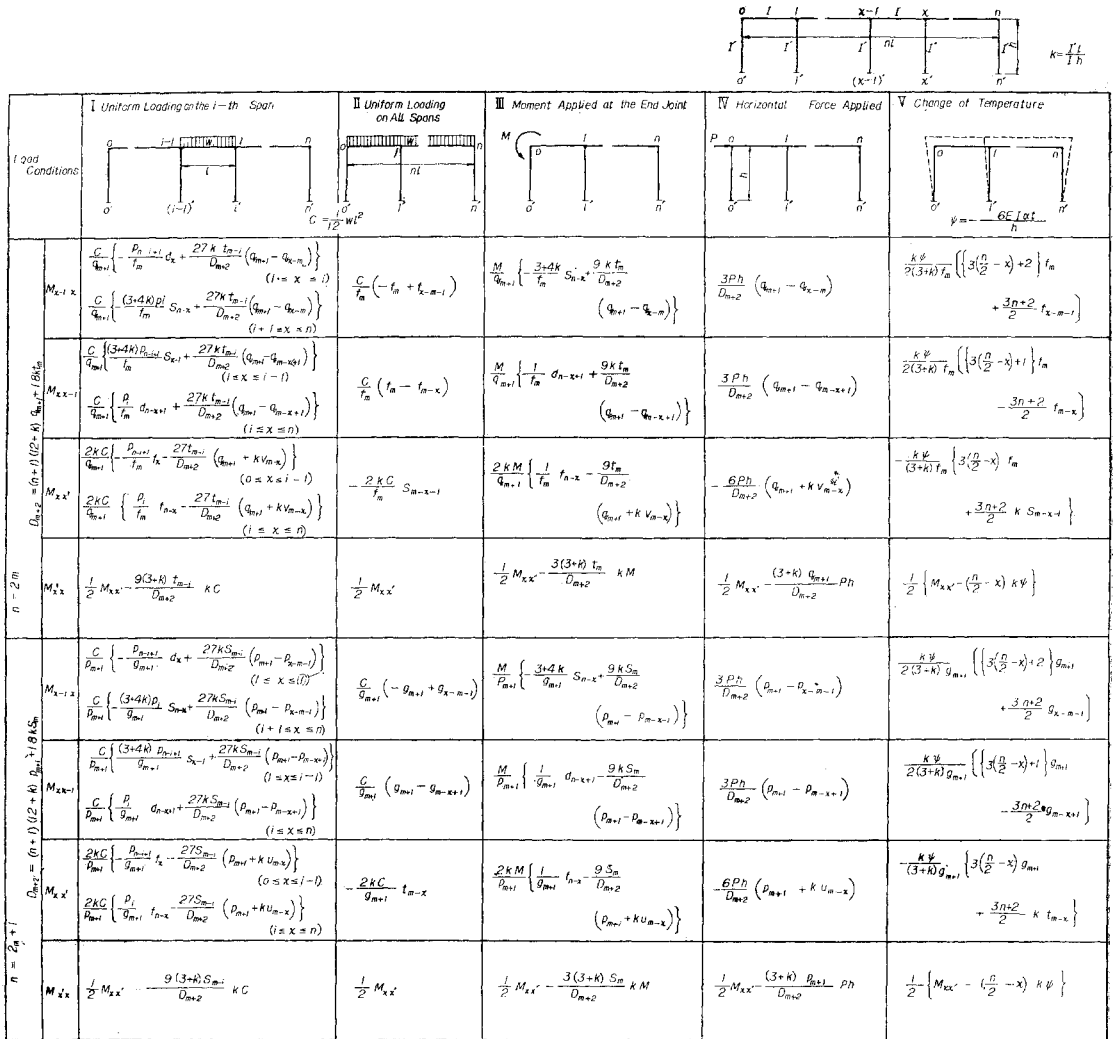 0 I 1 x-1 I x n
I' I' I' I' I' h
nl
0' 1' (x-1)' x' n'
k = I'l / I h
Load Conditions
I Uniform Loading on the i-th Span
0 i-1 w i n
l
0' (i-1)' i' n'
II Uniform Loading on All Spans
0 w 1 n
nl
0' 1' n'
C = 1/12 wl²
III Moment Applied at the End Joint
M 0 1 n
0' 1' n'
IV Horizontal Force Applied
P 0 1 n
h
0' 1' n'
V Change of Temperature
0 1 n
0' 1' n'
ψ = - 6EIαt / h
n = 2m
D_{m+2} = (n+1)(12+k) q_{m+1} + 18k t_m
M_{x-1 x}
C/q_{m+1} { - p_{n-i+1}/f_m d_x + 27k t_{m-i}/D_{m+2} (q_{m+1} - q_{x-m}) }
(i ≤ x ≤ i)
C/q_{m+1} { - (3+4k)p_i/f_m S_{n-x} + 27k t_{m-i}/D_{m+2} (q_{m+1} - q_{x-m}) }
(i+1 ≤ x ≤ n)
C/f_m (- f_m + f_{x-m-1})
M/q_{m+1} { - 3+4k/f_m S_{n-x} + 9k t_m/D_{m+2}
(q_{m+1} - q_{x-m}) }
3Ph/D_{m+2} (q_{m+1} - q_{x-m})
kψ/2(3+k) f_m { {3(n/2 - x) + 2} f_m
+ 3n+2/2 f_{x-m-1} }
M_{x x-1}
C/q_{m+1} { (3+4k)p_{n-i+1}/f_m S_{x-1} + 27k t_{m-i}/D_{m+2} (q_{m+1} - q_{m-x+1}) }
(i ≤ x ≤ i-1)
C/q_{m+1} { p_i/f_m d_{n-x+1} + 27k t_{m-i}/D_{m+2} (q_{m+1} - q_{m-x+1}) }
(i ≤ x ≤ n)
C/f_m (f_m - f_{m-x})
M/q_{m+1} { 1/f_m d_{n-x+1} + 9k t_m/D_{m+2}
(q_{m+1} - q_{m-x+1}) }
3Ph/D_{m+2} (q_{m+1} - q_{m-x+1})
kψ/2(3+k) f_m { {3(n/2 - x) + 1} f_m
- 3n+2/2 f_{m-x} }
M_{xx'}
2kC/q_{m+1} { - p_{n-i+1}/f_m t_x - 27t_{m-i}/D_{m+2} (q_{m+1} + k v_{m-x}) }
(0 ≤ x ≤ i-1)
2kC/q_{m+1} { p_i/f_m t_{n-x} - 27t_{m-i}/D_{m+2} (q_{m+1} + k v_{m-x}) }
(i ≤ x ≤ n)
- 2kC/f_m S_{m-x-1}
2kM/q_{m+1} { 1/f_m t_{n-x} - 9t_m/D_{m+2}
(q_{m+1} + k v_{m-x}) }
- 6Ph/D_{m+2} (q_{m+1} + k v_{m-x})
- kψ/(3+k) f_m { 3(n/2 - x) f_m
+ 3n+2/2 k S_{m-x-1} }
M_{x'x}
1/2 M_{xx'} - 9(3+k) t_{m-i}/D_{m+2} kC
1/2 M_{xx'}
1/2 M_{xx'} - 3(3+k) t_m/D_{m+2} kM
1/2 M_{xx'} - (3+k) q_{m+1}/D_{m+2} Ph
1/2 { M_{xx'} - (n/2 - x) kψ }
n = 2m + 1
D_{m+2} = (n+1)(12+k) p_{m+1} + 18k S_m
M_{x-1 x}
C/p_{m+1} { - p_{n-i+1}/g_{m+1} d_x + 27k S_{m-i}/D_{m+2} (p_{m+1} - p_{x-m-1}) }
(1 ≤ x ≤ i)
C/p_{m+1} { - (3+4k)p_i/g_{m+1} S_{n-x} + 27k S_{m-i}/D_{m+2} (p_{m+1} - p_{x-m-1}) }
(i+1 ≤ x ≤ n)
C/g_{m+1} (- g_{m+1} + g_{x-m-1})
M/p_{m+1} { - 3+4k/g_{m+1} S_{n-x} + 9k S_m/D_{m+2}
(p_{m+1} - p_{m-x-1}) }
3Ph/D_{m+2} (p_{m+1} - p_{x-m-1})
kψ/2(3+k) g_{m+1} { {3(n/2 - x) + 2} g_{m+1}
+ 3n+2/2 g_{x-m-1} }
M_{xx-1}
C/p_{m+1} { (3+4k) p_{n-i+1}/g_{m+1} S_{x-1} + 27k S_{m-i}/D_{m+2} (p_{m+1} - p_{m-x+1}) }
(1 ≤ x ≤ i-1)
C/p_{m+1} { p_i/g_{m+1} d_{n-x+1} + 27k S_{m-i}/D_{m+2} (p_{m+1} - p_{m-x+1}) }
(i ≤ x ≤ n)
C/g_{m+1} (g_{m+1} - g_{m-x+1})
M/p_{m+1} { 1/g_{m+1} d_{n-x+1} - 9k S_m/D_{m+2}
(p_{m+1} - p_{m-x+1}) }
3Ph/D_{m+2} (p_{m+1} - p_{m-x+1})
kψ/2(3+k) g_{m+1} { {3(n/2 - x) + 1} g_{m+1}
- 3n+2/2 g_{m-x+1} }
M_{xx'}
2kC/p_{m+1} { - p_{n-i+1}/g_{m+1} t_x - 27S_{m-i}/D_{m+2} (p_{m+1} + k u_{m-x}) }
(0 ≤ x ≤ i-1)
2kC/p_{m+1} { - p_i/g_{m+1} t_{n-x} - 27S_{m-i}/D_{m+2} (p_{m+1} + k u_{m-x}) }
(i ≤ x ≤ n)
- 2kC/g_{m+1} t_{m-x}
2kM/p_{m+1} { 1/g_{m+1} t_{n-x} - 9S_m/D_{m+2}
(p_{m+1} + k u_{m-x}) }
- 6Ph/D_{m+2} (p_{m+1} + k u_{m-x})
- kψ/(3+k) g_{m+1} { 3(n/2 - x) g_{m+1}
+ 3n+2/2 k t_{m-x} }
M_{x'x}
1/2 M_{xx'} - 9(3+k) S_{m-i}/D_{m+2} kC
1/2 M_{xx'}
1/2 M_{xx'} - 3(3+k) S_m/D_{m+2} kM
1/2 M_{xx'} - (3+k) p_{m+1}/D_{m+2} Ph
1/2 { M_{xx'} - (n/2 - x) kψ }